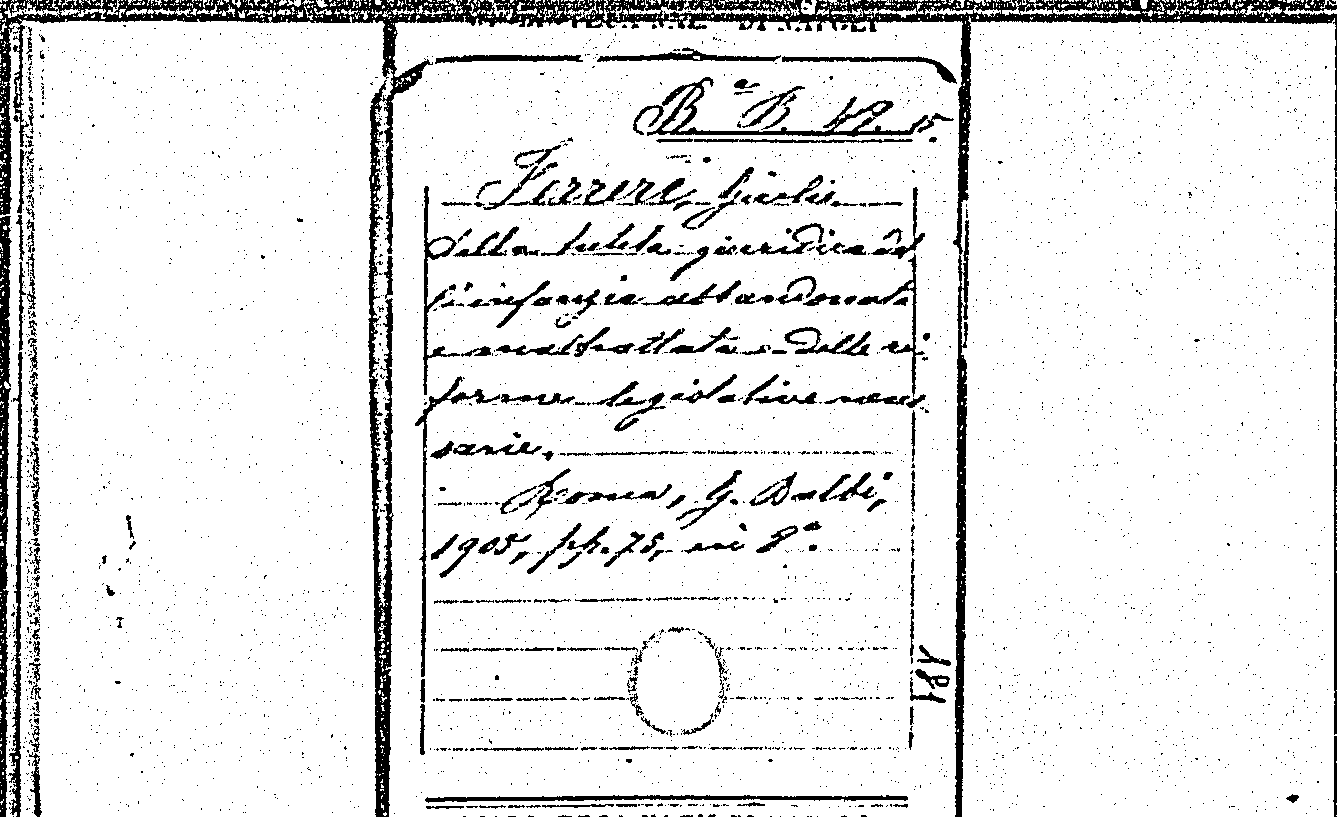 B.ª B. 49. 15.
Ferreri, Giulio
Della tutela giuridica del
l'infanzia abbandonata
e maltrattata e delle ri
forme legislative neces
sarie.
Roma, G. Balbi,
1905, pp. 75, in 8°.